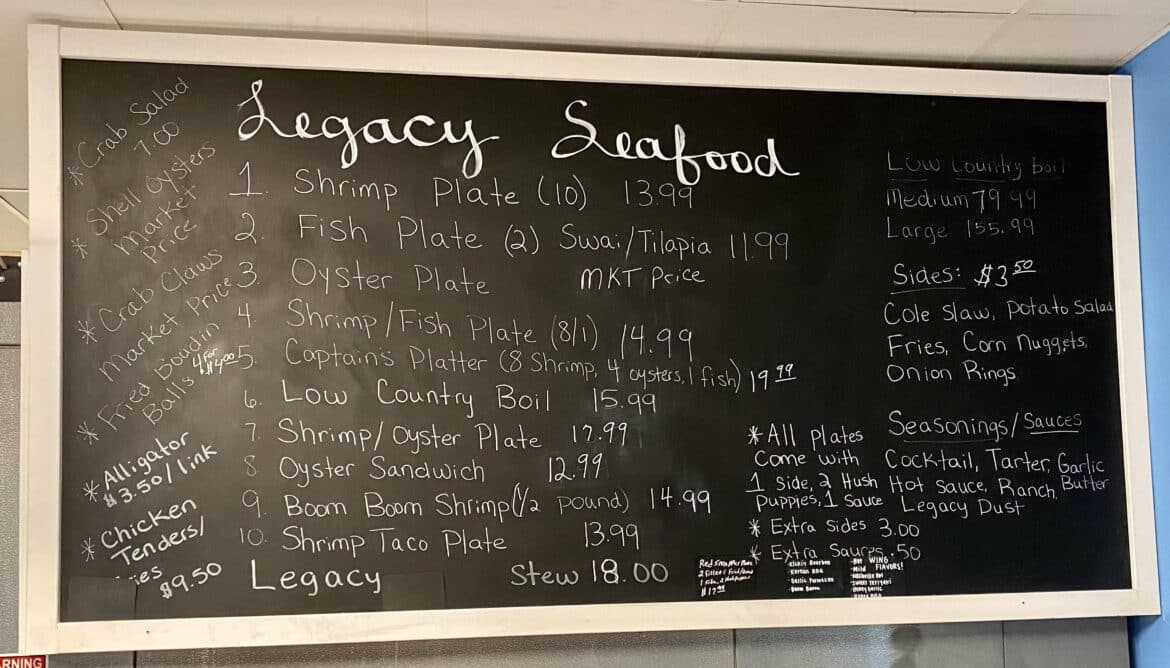 Legacy Seafood
* Crab Salad
7.00
* Shell Oysters
Market
Price
* Crab Claws
Market Price
* Fried boudin
Balls 4 for $4.00
* Alligator
$3.50/link
* Chicken
Tenders/
$9.50
1. Shrimp Plate (10) 13.99
2. Fish Plate (2) Swai/Tilapia 11.99
3. Oyster Plate MKT Price
4. Shrimp/Fish Plate (8/1) 14.99
5. Captain's Platter (8 Shrimp, 4 oysters, 1 fish) 19.99
6. Low Country Boil 15.99
7. Shrimp/Oyster Plate 17.99
8 Oyster Sandwich 12.99
9. Boom Boom Shrimp (1/2 pound) 14.99
10. Shrimp Taco Plate 13.99
Legacy Stew 18.00
Low Country boil
Medium 79.99
Large 155.99
Sides: $3.50
Cole Slaw, Potato Salad
Fries, Corn Nuggets,
Onion Rings
Seasonings/Sauces
Cocktail, Tarter, Garlic Butter
Hot Sauce, Ranch,
Legacy Dust
* All plates
Come with
1 Side, 2 Hush
Puppies, 1 Sauce
* Extra Sides 3.00
* Extra Sauces .50
$17.99
Boom Boom
Hot WING
Mild FLAVORS!
Honey Garlic
RNING